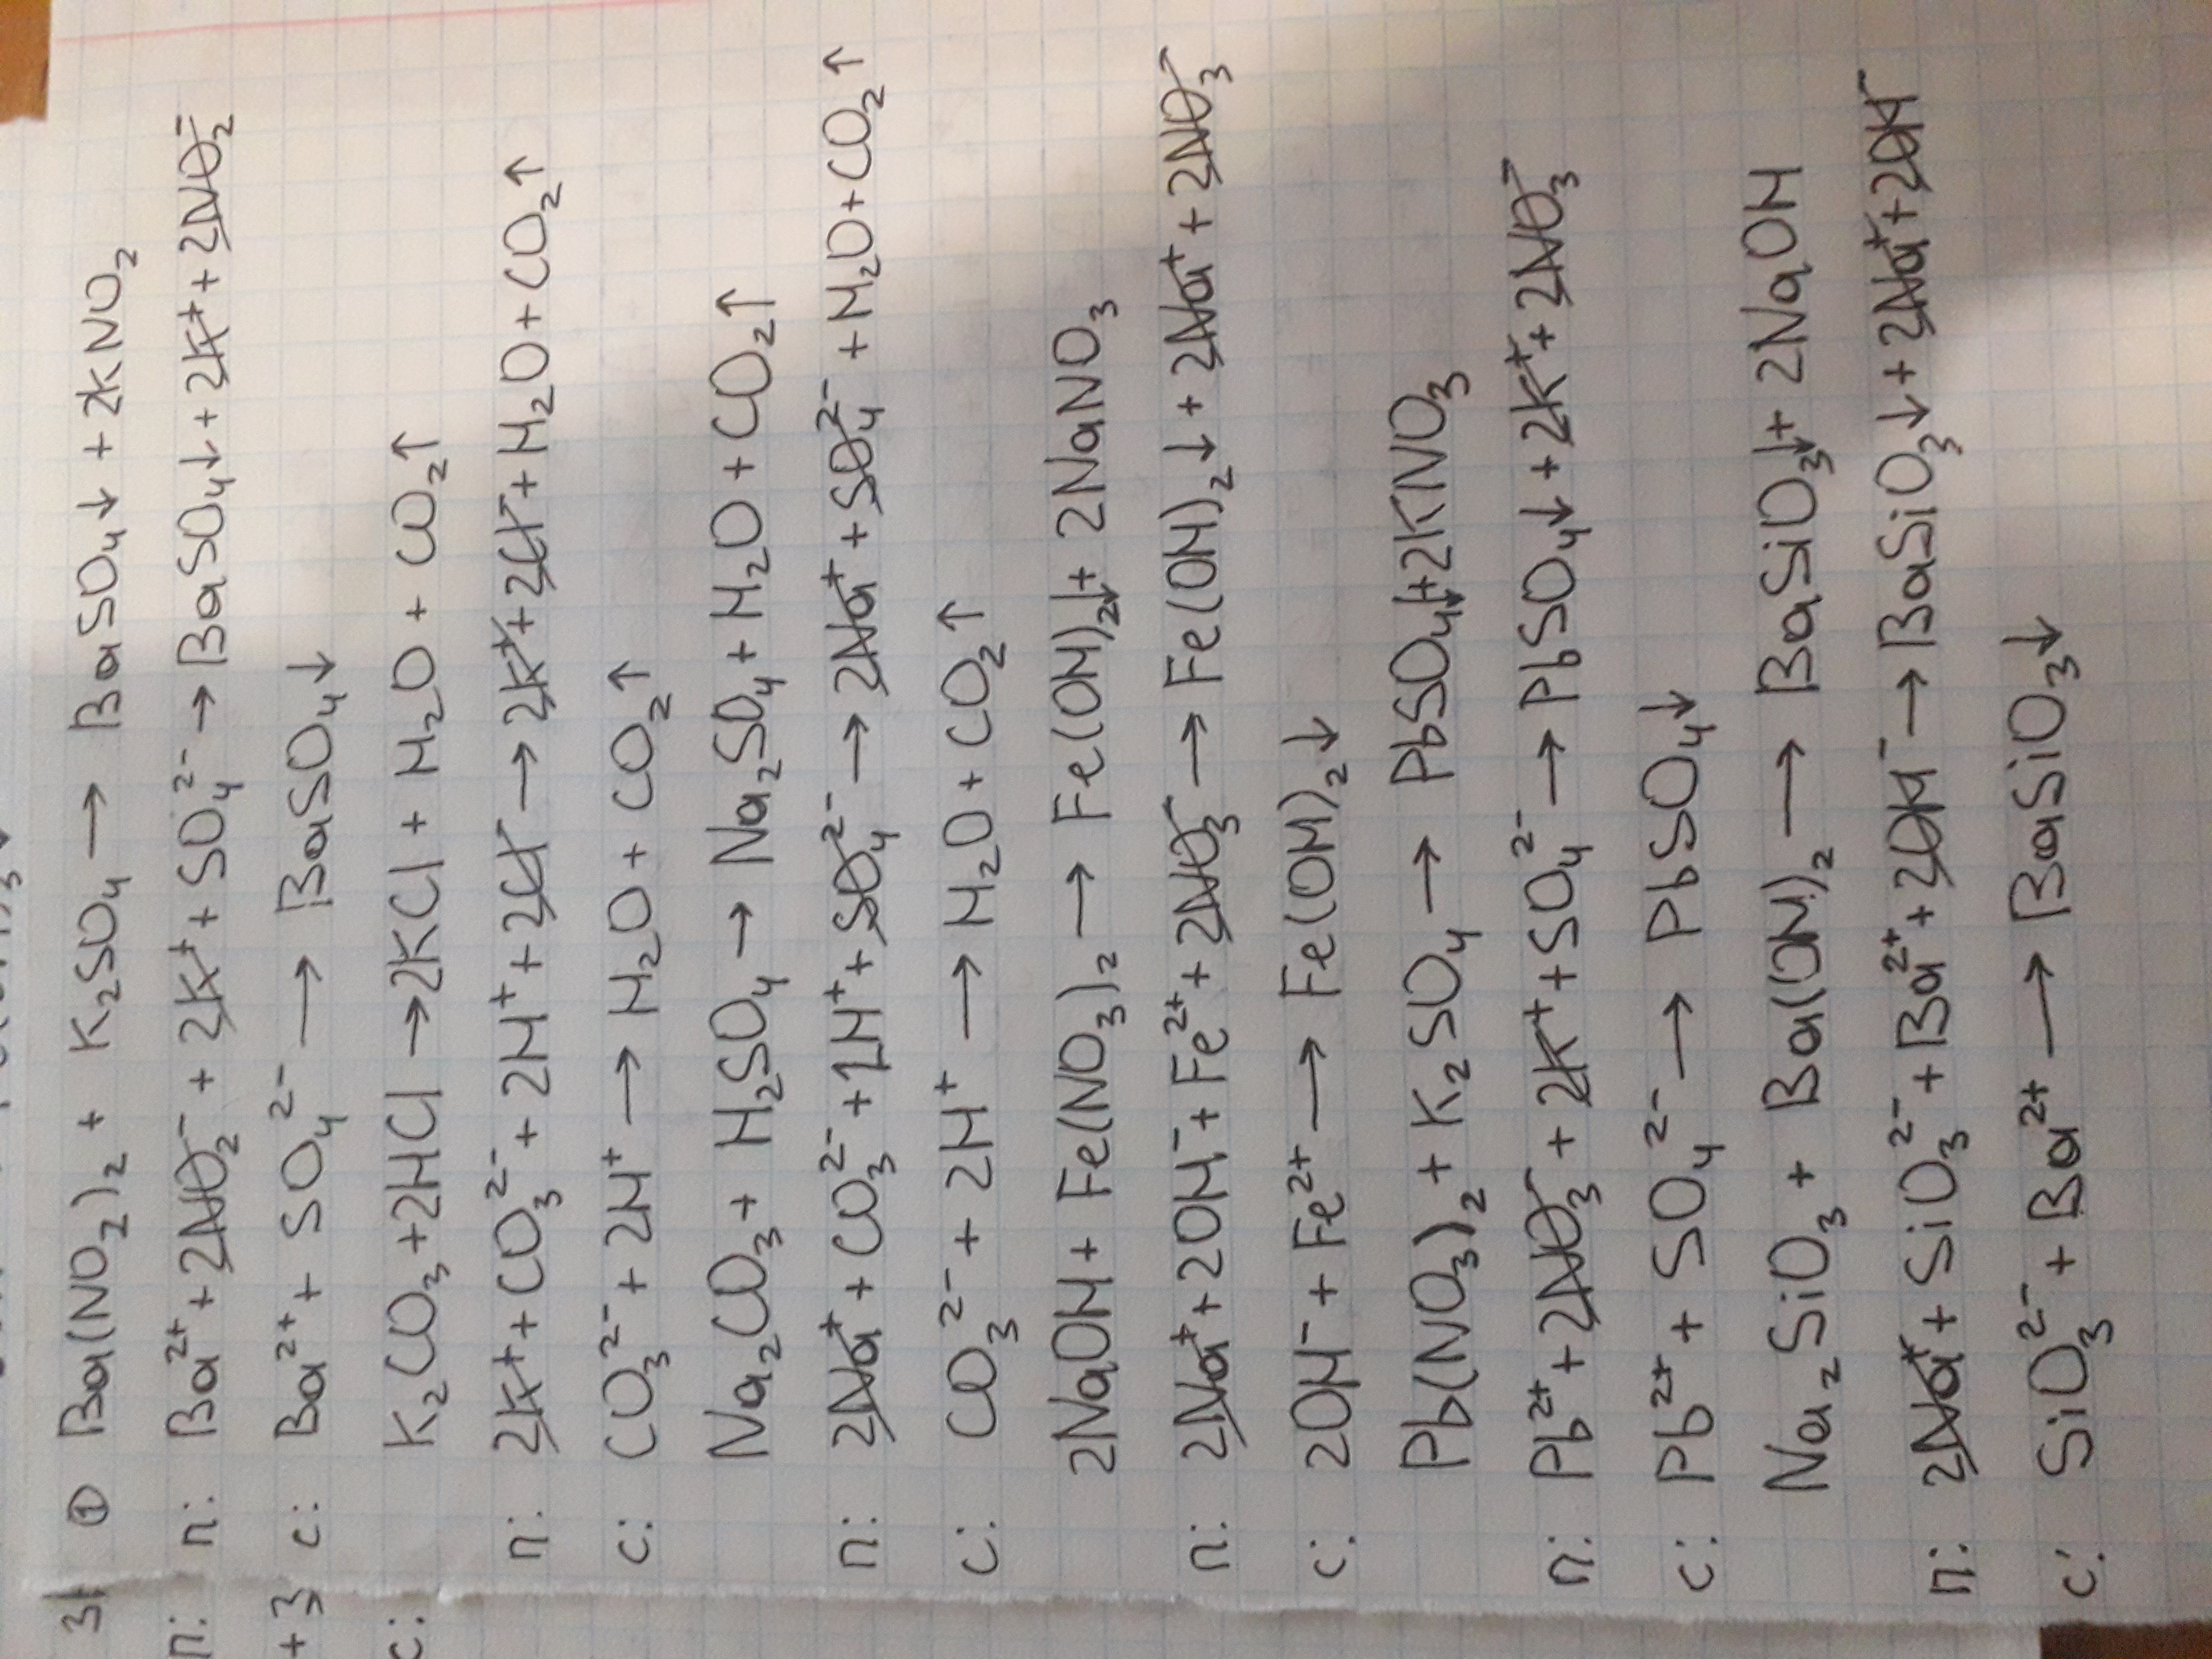 ① Ba(NO₂)₂ + K₂SO₄ → BaSO₄↓ + 2KNO₂
п: Ba²⁺ + 2NO₂⁻ + 2K⁺ + SO₄²⁻ → BaSO₄↓ + 2K⁺ + 2NO₂⁻
с: Ba²⁺ + SO₄²⁻ → BaSO₄↓
K₂CO₃ + 2HCl → 2KCl + H₂O + CO₂↑
п: 2K⁺ + CO₃²⁻ + 2H⁺ + 2Cl⁻ → 2K⁺ + 2Cl⁻ + H₂O + CO₂↑
с: CO₃²⁻ + 2H⁺ → H₂O + CO₂↑
Na₂CO₃ + H₂SO₄ → Na₂SO₄ + H₂O + CO₂↑
п: 2Na⁺ + CO₃²⁻ + 2H⁺ + SO₄²⁻ → 2Na⁺ + SO₄²⁻ + H₂O + CO₂↑
с: CO₃²⁻ + 2H⁺ → H₂O + CO₂↑
2NaOH + Fe(NO₃)₂ → Fe(OH)₂↓ + 2NaNO₃
п: 2Na⁺ + 2OH⁻ + Fe²⁺ + 2NO₃⁻ → Fe(OH)₂↓ + 2Na⁺ + 2NO₃⁻
с: 2OH⁻ + Fe²⁺ → Fe(OH)₂↓
Pb(NO₃)₂ + K₂SO₄ → PbSO₄↓ + 2KNO₃
п: Pb²⁺ + 2NO₃⁻ + 2K⁺ + SO₄²⁻ → PbSO₄↓ + 2K⁺ + 2NO₃⁻
с: Pb²⁺ + SO₄²⁻ → PbSO₄↓
Na₂SiO₃ + Ba(OH)₂ → BaSiO₃↓ + 2NaOH
п: 2Na⁺ + SiO₃²⁻ + Ba²⁺ + 2OH⁻ → BaSiO₃↓ + 2Na⁺ + 2OH⁻
с: SiO₃²⁻ + Ba²⁺ → BaSiO₃↓
п:
+3
с: